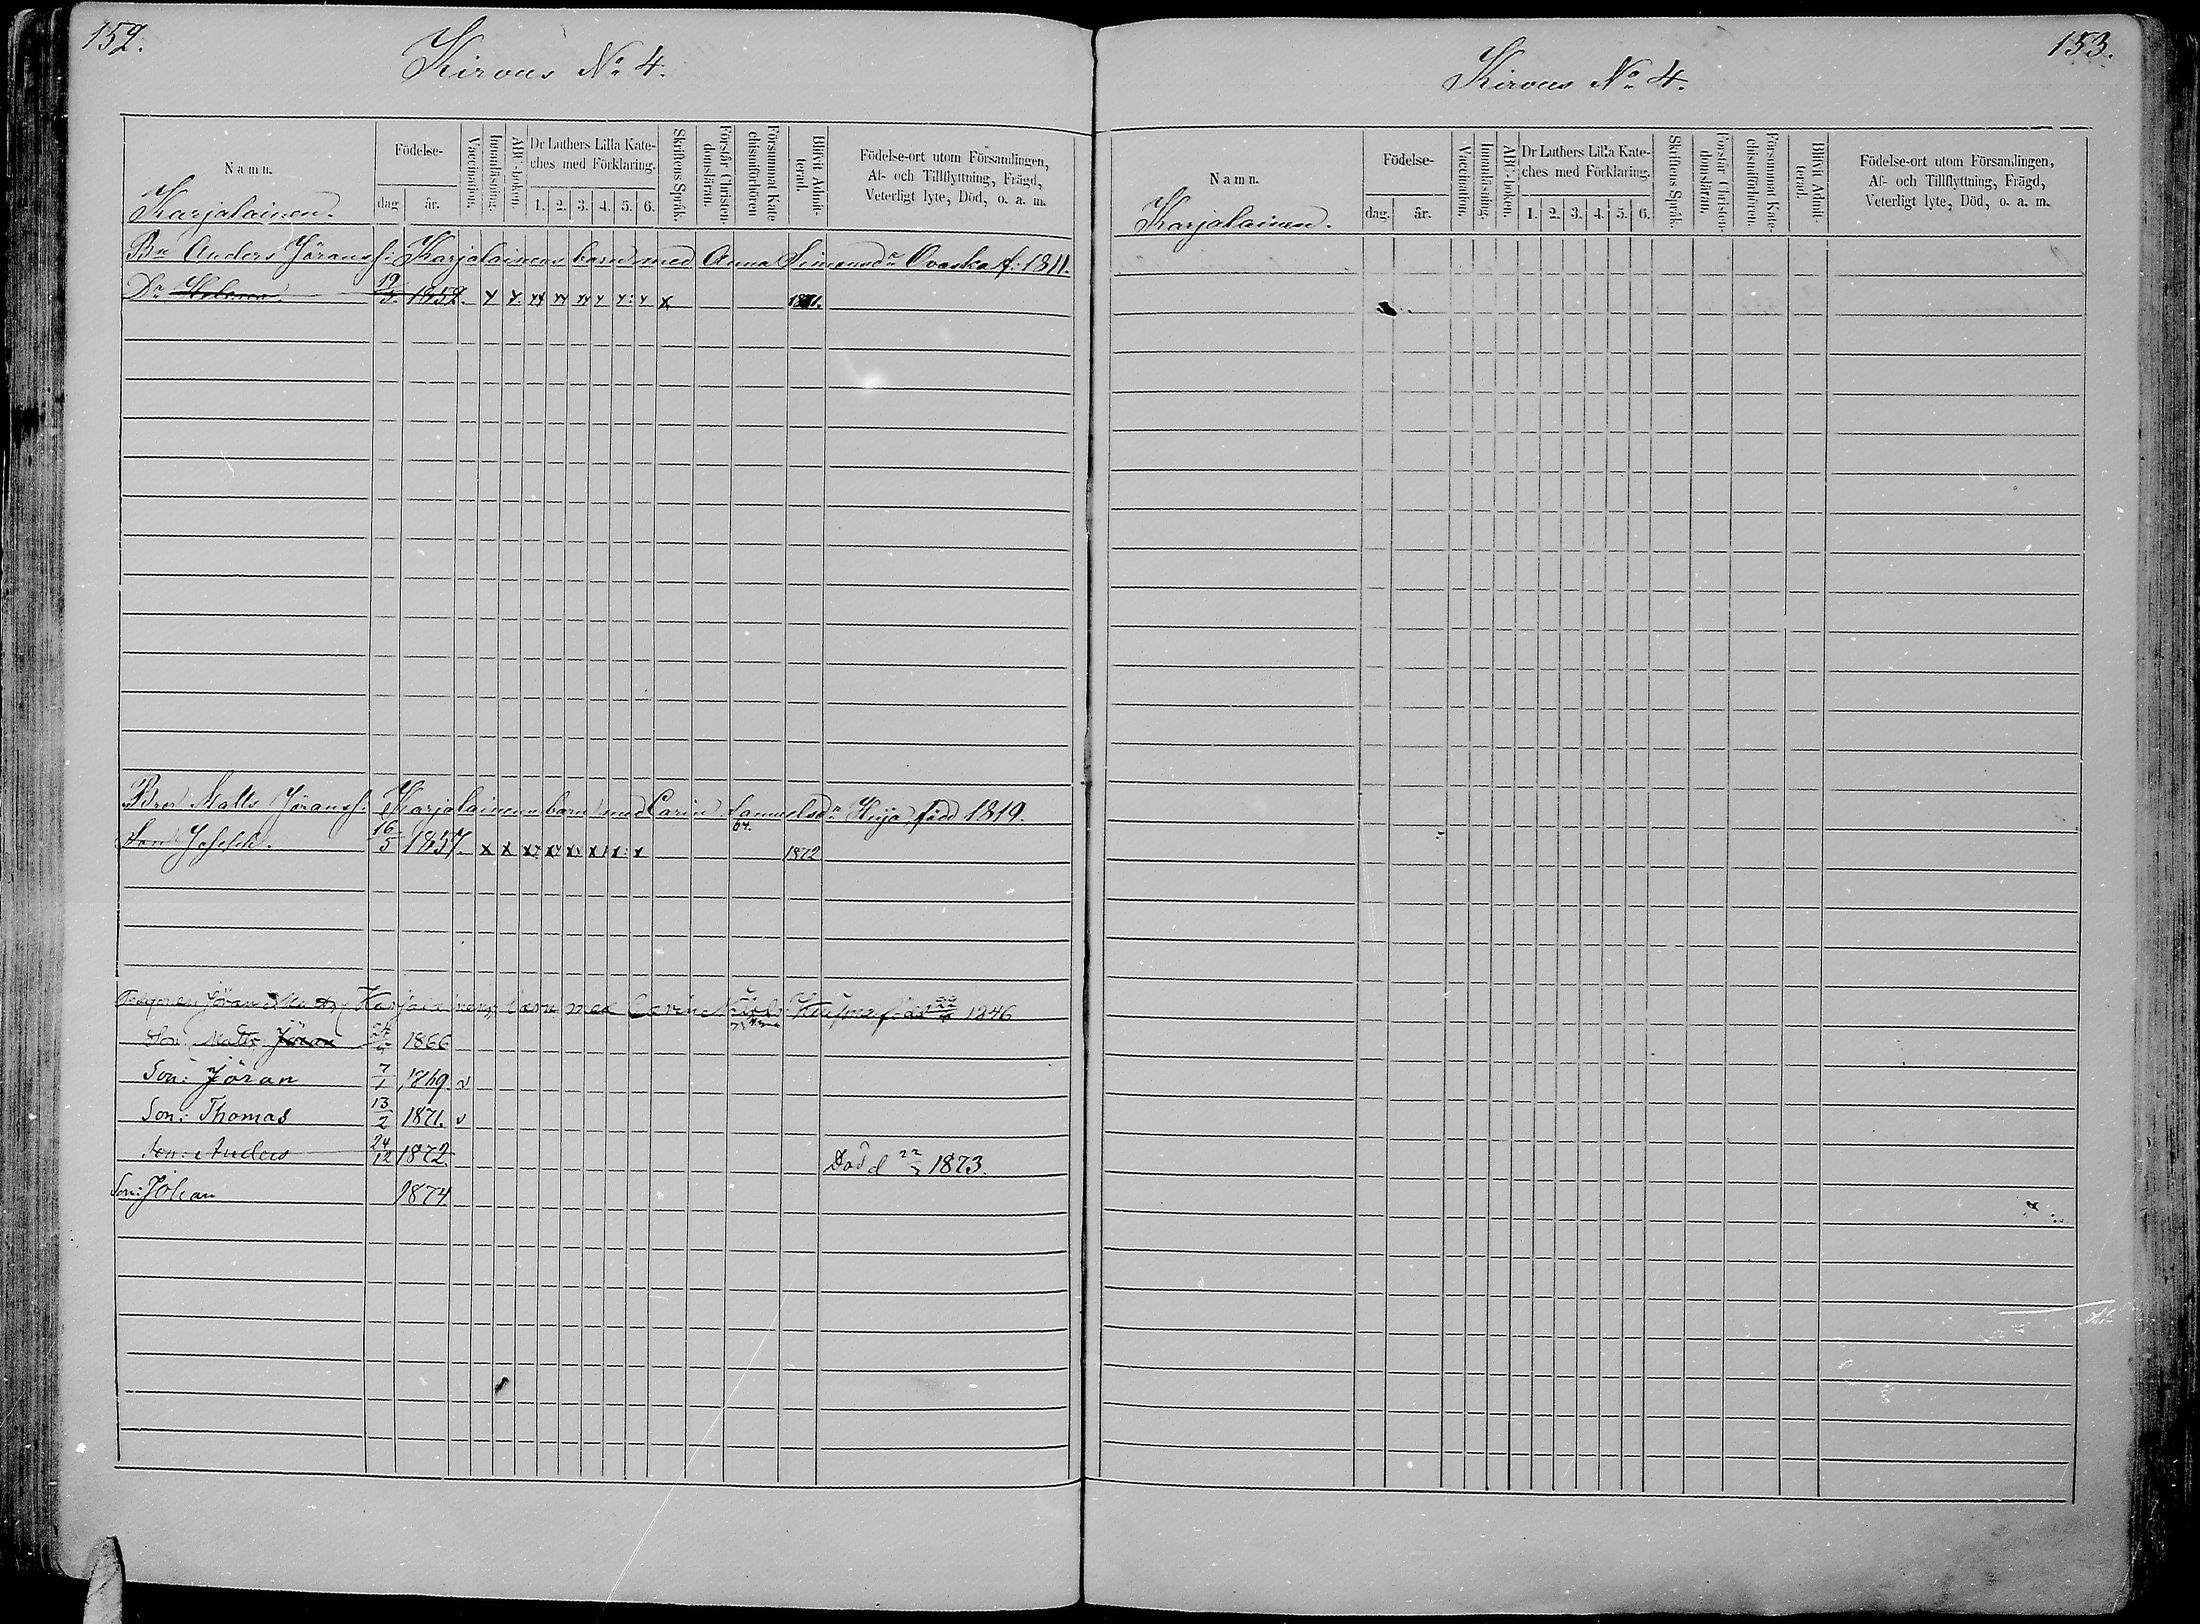 152.
Kirvus No 4.
Namn.
Födelse-
dag
år.
Vaccination.
Innanläsning.
ABC-boken.
Dr Luthers Lilla Kate-
ches med Förklaring.
1. 2. 3. 4. 5. 6.
Skriftens Språk.
Förstår Christen-
domsläran.
Försummat Kate-
chismiförhören
Blifvit Admit-
terad.
Födelse-ort utom Församlingen,
Af- och Tillflyttning, Frägd,
Veterligt lyte, Död, o. a. m.
Karjalainen.
Bn Anders Jöransf: Karjalainens barn med Anna Simonsdr Ovaska f: 1811.
Dr Helena. 19/3 1852. 1871.
Bror Matts Jöransf: Karjalainens barn med Carin Samuelsdr Hüja född 1819.
64.
Son Joseph. 16/5 1857. 1872
Jöran Karjalainens barn med Carin 1846
Son: Matts Jöran 1866
Son: Jöran 7/1 1869. v
Son: Thomas 13/2 1871. v
Son: Anders 24/12 1872. Död d 22/7 1873.
Son: Johan 1874
153.
Kirvus No 4.
Namn.
Födelse-
dag.
år.
Vaccination.
Innanläsning.
ABC-boken.
Dr Luthers Lilla Kate-
ches med Förklaring.
1. 2. 3. 4. 5. 6.
Skriftens Språk.
Förstår Christen-
domsläran.
Försummat Kate-
chismiförhören.
Blifvit Admit-
terad.
Födelse-ort utom Församlingen,
Af- och Tillflyttning, Frägd,
Veterligt lyte, Död, o. a. m.
Karjalainen.